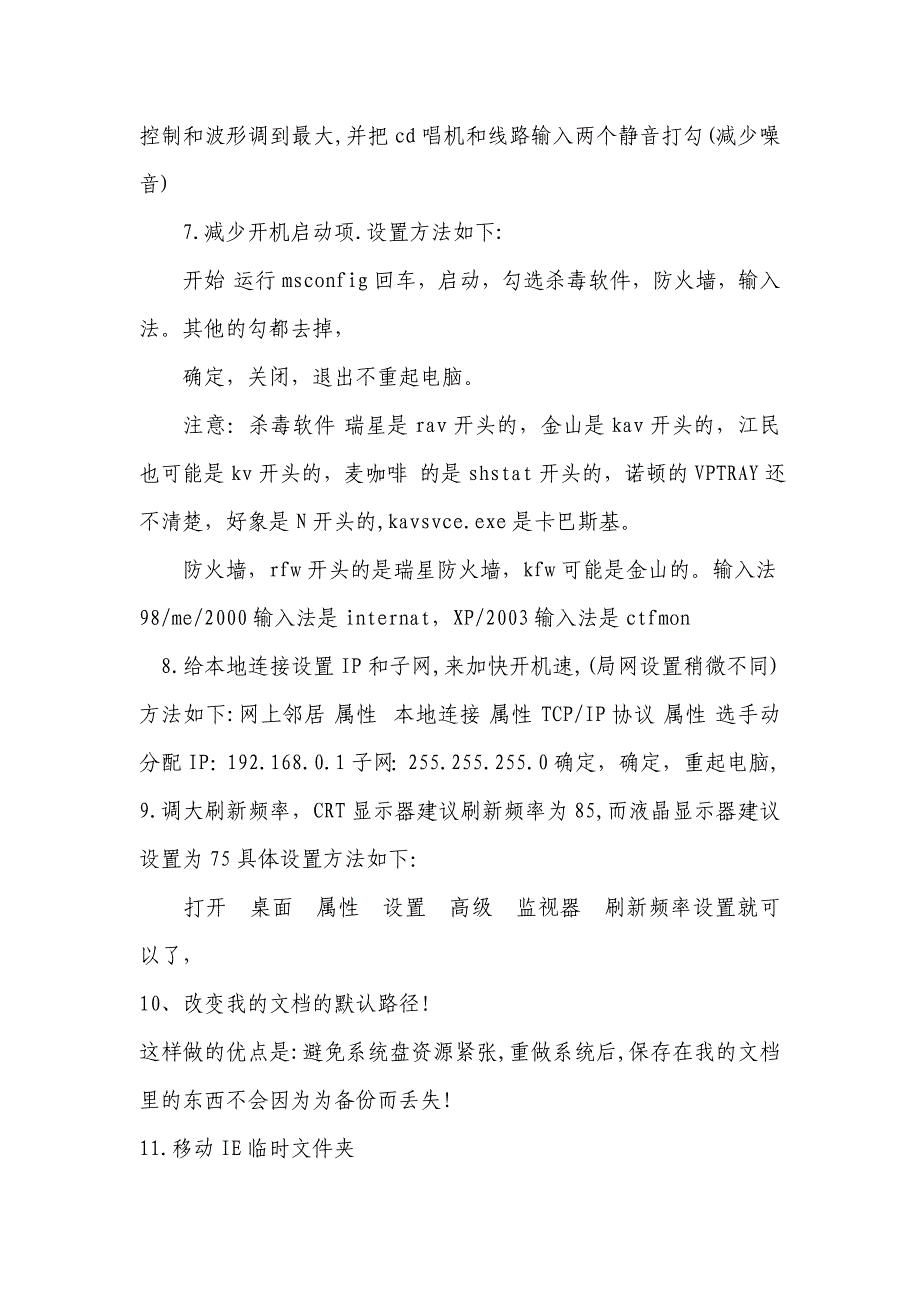 控制和波形调到最大,并把 cd 唱机和线路输入两个静音打勾(减少噪
音)
7.减少开机启动项.设置方法如下:
开始 运行 msconfig 回车，启动，勾选杀毒软件，防火墙，输入
法。其他的勾都去掉，
确定，关闭，退出不重起电脑。
注意：杀毒软件 瑞星是 rav 开头的，金山是 kav 开头的，江民
也可能是 kv 开头的，麦咖啡 的是 shstat 开头的，诺顿的 VPTRAY 还
不清楚，好象是 N 开头的,kavsvce.exe 是卡巴斯基。
防火墙，rfw 开头的是瑞星防火墙，kfw 可能是金山的。输入法
98/me/2000 输入法是 internat，XP/2003 输入法是 ctfmon
8.给本地连接设置 IP 和子网,来加快开机速,(局网设置稍微不同)
方法如下:网上邻居 属性 本地连接 属性 TCP/IP 协议 属性 选手动
分配 IP：192.168.0.1 子网：255.255.255.0 确定，确定，重起电脑，
9.调大刷新频率，CRT 显示器建议刷新频率为 85,而液晶显示器建议
设置为 75 具体设置方法如下：
打开 桌面 属性 设置 高级 监视器 刷新频率设置就可
以了，
10、改变我的文档的默认路径！
这样做的优点是:避免系统盘资源紧张,重做系统后,保存在我的文档
里的东西不会因为为备份而丢失！
11.移动 IE 临时文件夹